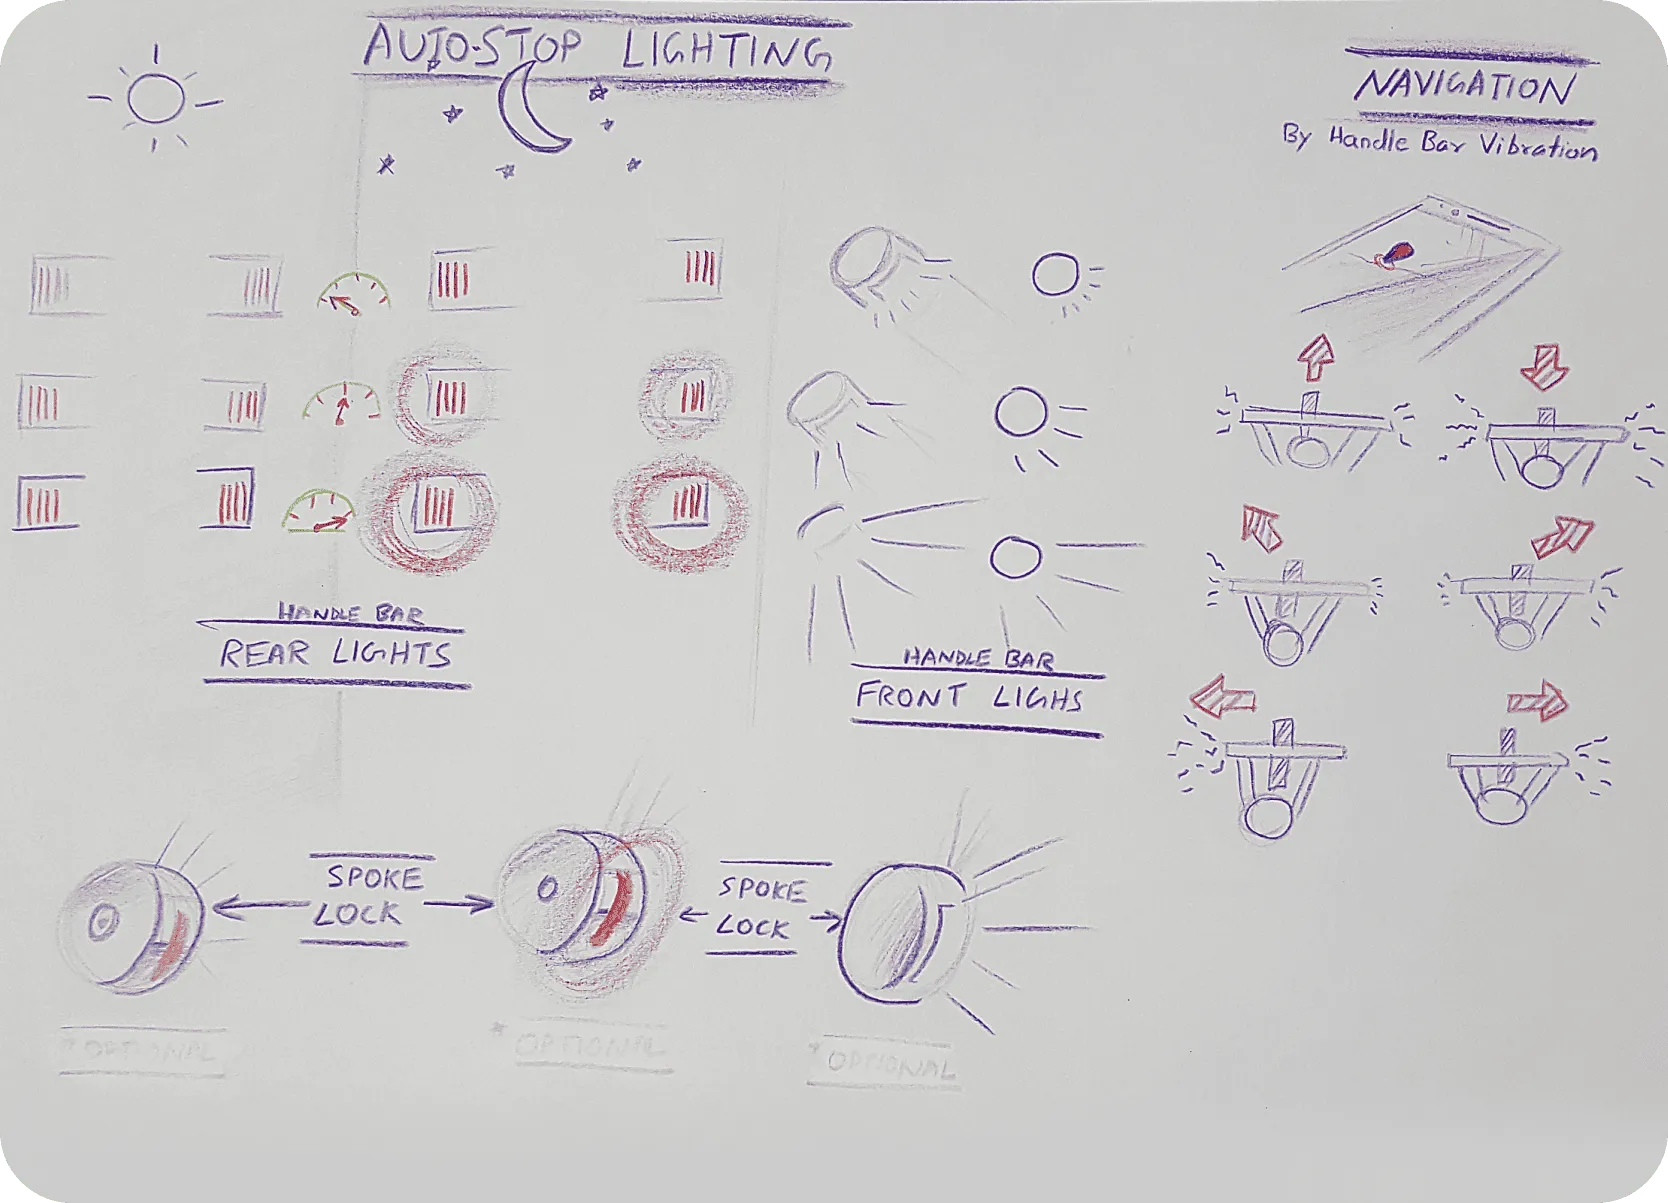 AUTO-STOP LIGHTING
NAVIGATION
By Handle Bar Vibration
HANDLE BAR
REAR LIGHTS
HANDLE BAR
FRONT LIGHS
SPOKE
LOCK
SPOKE
LOCK
* OPTIONAL
* OPTIONAL
* OPTIONAL